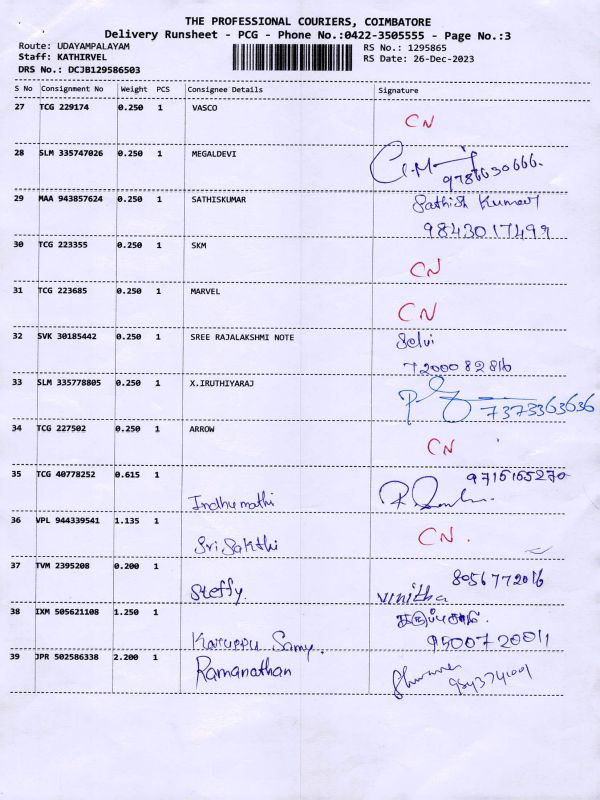 THE PROFESSIONAL COURIERS, COIMBATORE
Delivery Runsheet - PCG - Phone No.:0422-3505555 - Page No.:3
Route: UDAYAMPALAYAM RS No.: 1295865
Staff: KATHIRVEL RS Date: 26-Dec-2023
DRS No.: DCJB129586503
S No Consignment No Weight PCS Consignee Details Signature
27 TCG 229174 0.250 1 VASCO
CN
28 SLM 335747026 0.250 1 MEGALDEVI
9786630666.
29 MAA 943857624 0.250 1 SATHISKUMAR Sathish Kumar
9843017499
30 TCG 223355 0.250 1 SKM
CN
31 TCG 223685 0.250 1 MARVEL
CN
32 SVK 30185442 0.250 1 SREE RAJALAKSHMI NOTE Selvi
7200082816
33 SLM 335778805 0.250 1 X.IRUTHIYARAJ
7373363636
34 TCG 227502 0.250 1 ARROW
CN
35 TCG 40778252 0.615 1 9715165270
Indhumathi
36 VPL 944339541 1.135 1 CN.
Sri Sakthi
37 TVM 2395208 0.200 1 8056772016
Steffy. vinitha
38 IXM 505621108 1.250 1
Karuppu Samy. 9500720011
39 JPR 502586338 2.200 1 Ramanathan